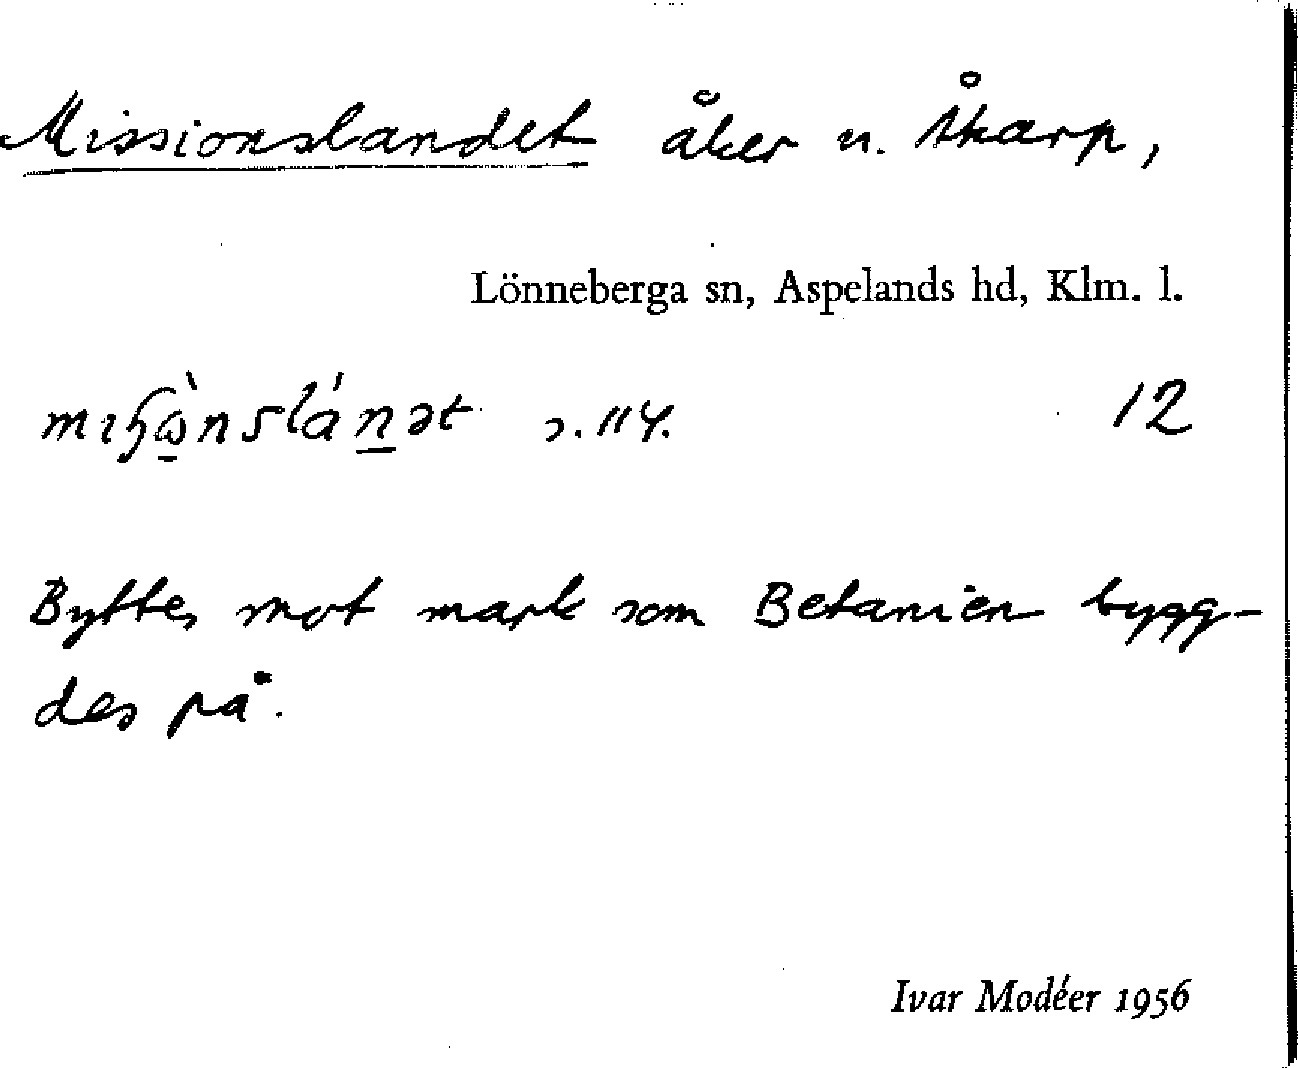 Missionslandet åker u. Åkarp,
Lönneberga sn, Aspelands hd, Klm. l.
12
Byttes mot mark som Betanien bygg-
des på.
Ivar Modéer 1956